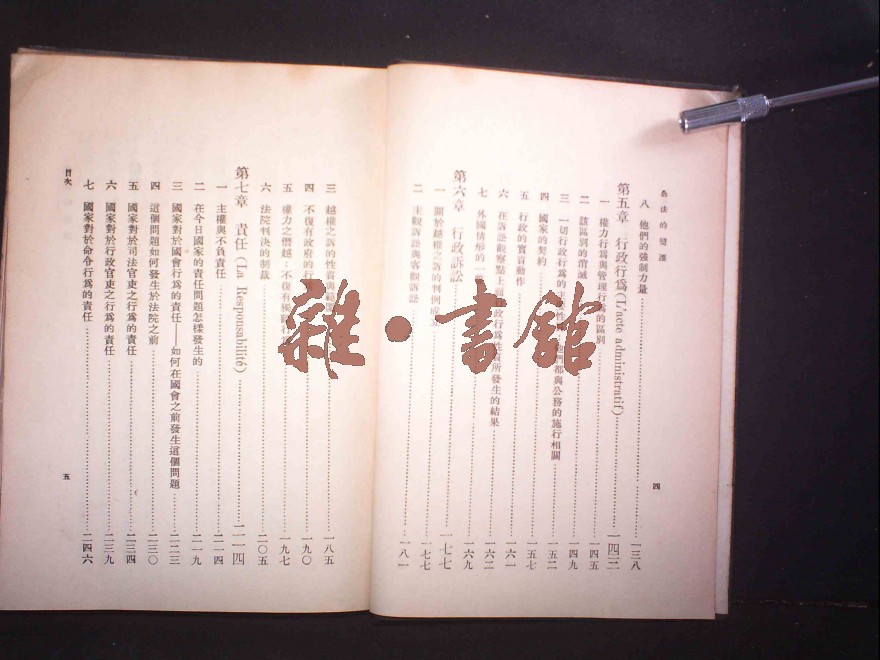 公法的變遷
八 他們的強制力量……一三八
第五章 行政行爲(L'acte administratif)……一四三
一 權力行爲與管理行爲的區別……一四五
二 該區別的消滅……一四九
三 一切行政行爲的 都與公務的施行相關……一五二
四 國家的契約……一五七
五 行政的實質動作……一六一
六 在訴訟觀察點上 行政行爲性質所發生的結果……一六二
七 外國情形的一……一六九
第六章 行政訴訟……一七七
一 關於越權之訴的判例……一七七
二 主觀訴訟與客觀訴訟……一八一
四
三 越權之訴的性質與範圍……一八五
四 不復有政府的行爲……一九〇
五 權力之僭越:不復有……一九七
六 法院判決的制裁……二〇五
第七章 責任(La Responsabilité)……二一四
一 主權與不負責任……二一四
二 在今日國家的責任問題怎樣發生的……二一九
三 國家對於國會行爲的責任——如何在國會之前發生這個問題……二二三
四 這個問題如何發生於法院之前……二三〇
五 國家對於司法官吏之行爲的責任……二三四
六 國家對於行政官吏之行爲的責任……二三九
七 國家對於命令行爲的責任……二四六
目次
五
雜·書館